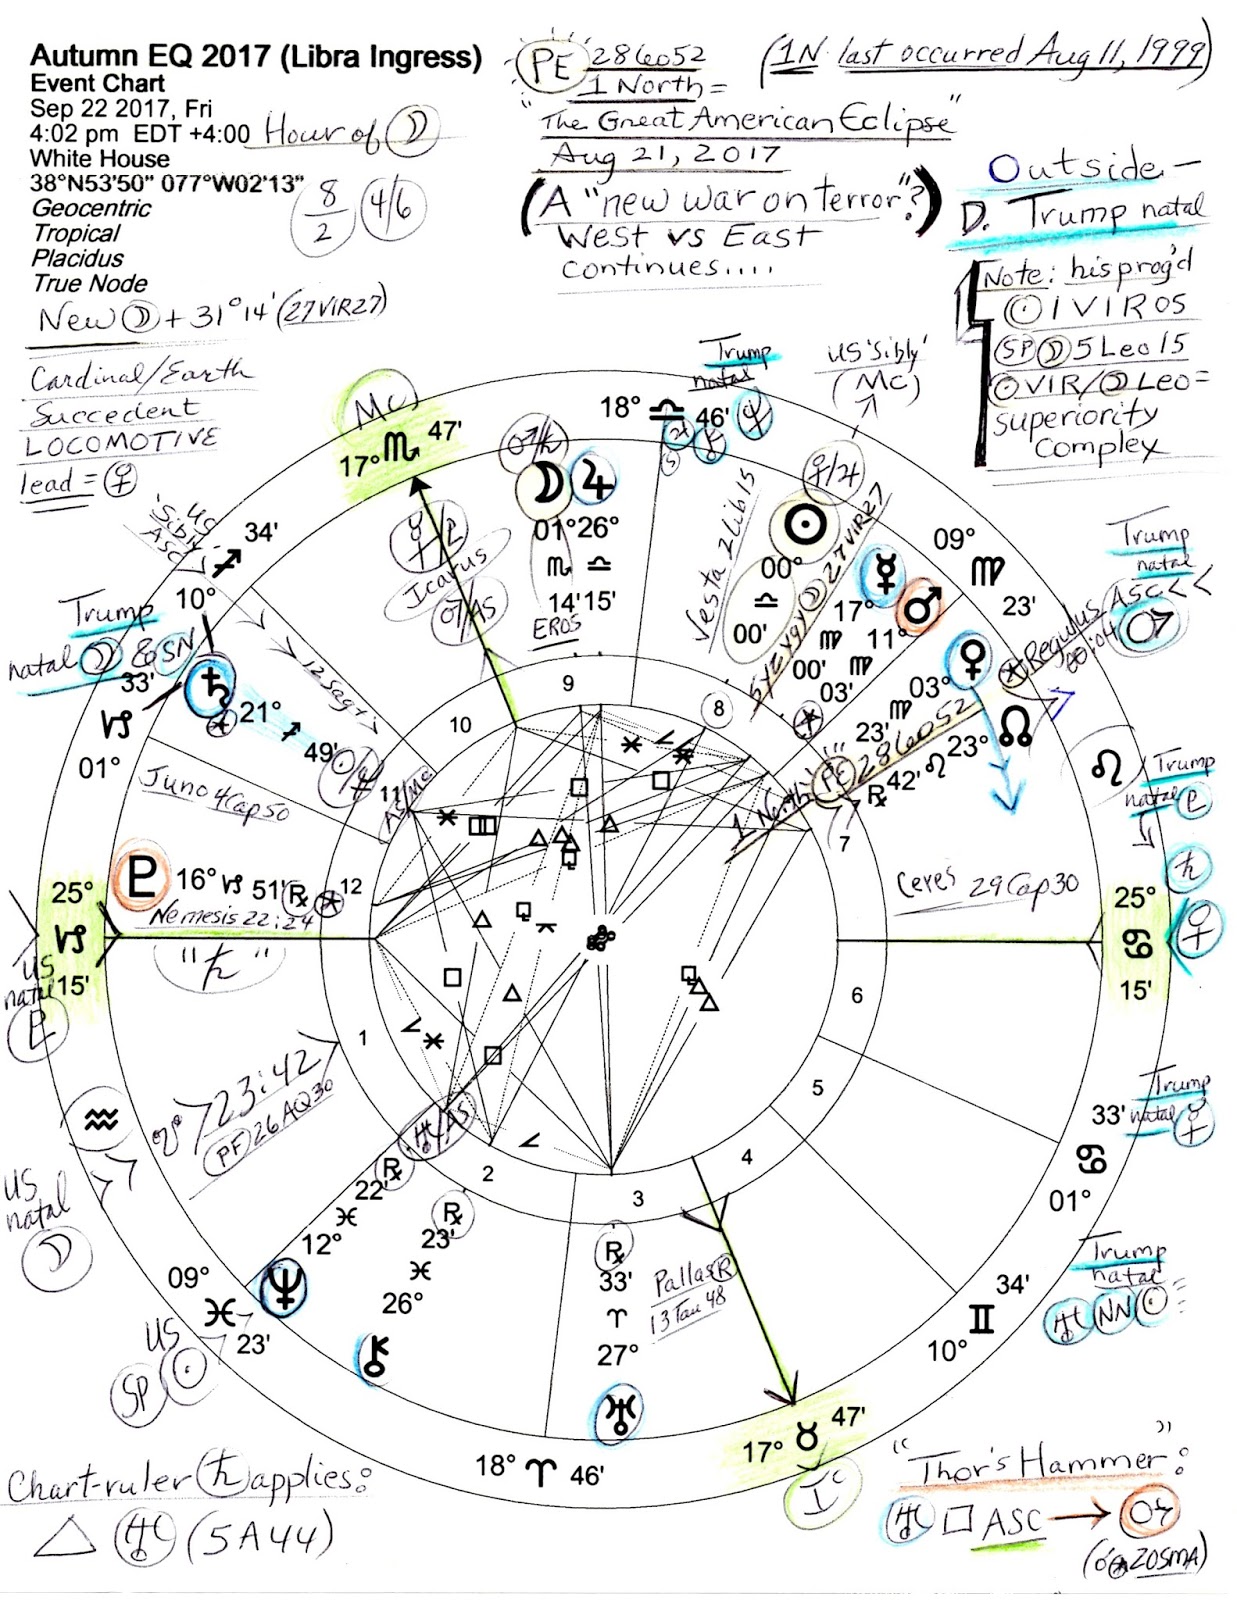 Autumn EQ 2017 (Libra Ingress)
Event Chart
Sep 22 2017, Fri
4:02 pm EDT +4:00 Hour of ☽
White House
38°N53'50" 077°W02'13"
Geocentric
Tropical
Placidus
True Node
8/2 4/6
New ☽ + 31°14' (27VIR27)
Cardinal/Earth
Succedent
LOCOMOTIVE
lead = ♀
PE 286052
1 North =
"The Great American Eclipse"
Aug 21, 2017
(A "new war on terror"?)
West vs East
continues....
(1N last occurred Aug 11, 1999)
Outside -
D. Trump natal
Note: his prog'd
☉ 1 VIR 05
SP ☽ 5 Leo 15
☉ VIR/☽ Leo =
superiority
complex
MC
17° ♏ 47'
Trump
natal
18° ♎ 46'
♃ ⚷
US 'Sibly'
(MC)
☽ ♃
01° 26°
♏ ♎
14' 15'
EROS
Icarus
Vesta 2 Lib 15
♀/♃
☉
00°
♎
00'
SYZYGY ☽ 27VIR27
☿
17°
♍
00'
♂
11°
♍
03'
09° ♍ 23'
Trump
natal
ASC
♂
Regulus
♀
03°
♍
23'
☊
23°
♌
42'
℞
1 North PE 286052
♌
Trump
natal ♇
♄
♀
25°
♋
15'
Ceres 29 Cap 30
Trump
natal ☿
33'
♋
01°
Trump
natal
♅ NN ☉
34'
♊
10°
US
'Sibly'
ASC
♐ 34'
10°
12 Sag 21
Trump
natal ☽ & SN
33'
♑
01°
♄ 21° ♐ 49'
Juno 4 Cap 50
AS/MC
♇ 16° ♑ 51' ℞
Nemesis 22:24
"♄"
25°
♑
15'
US
natal
♇
♒
23:42
PF 26 AQ 30
♅/AS
US
natal
☽
℞
22'
♓
12°
♆
℞
23'
♓
26°
⚷
09°
♓
23'
US
SP ☉
℞
33'
♈
27°
♅
Pallas ℞
13 Tau 48
18° ♈ 46'
17° ♉ 47'
IC
1
2
3
4
5
6
7
8
9
10
11
12
Chart-ruler ♄ applies:
△ ♅ (5A44)
"Thor's Hammer":
♅ □ ASC → ♂
(☌ ZOSMA)